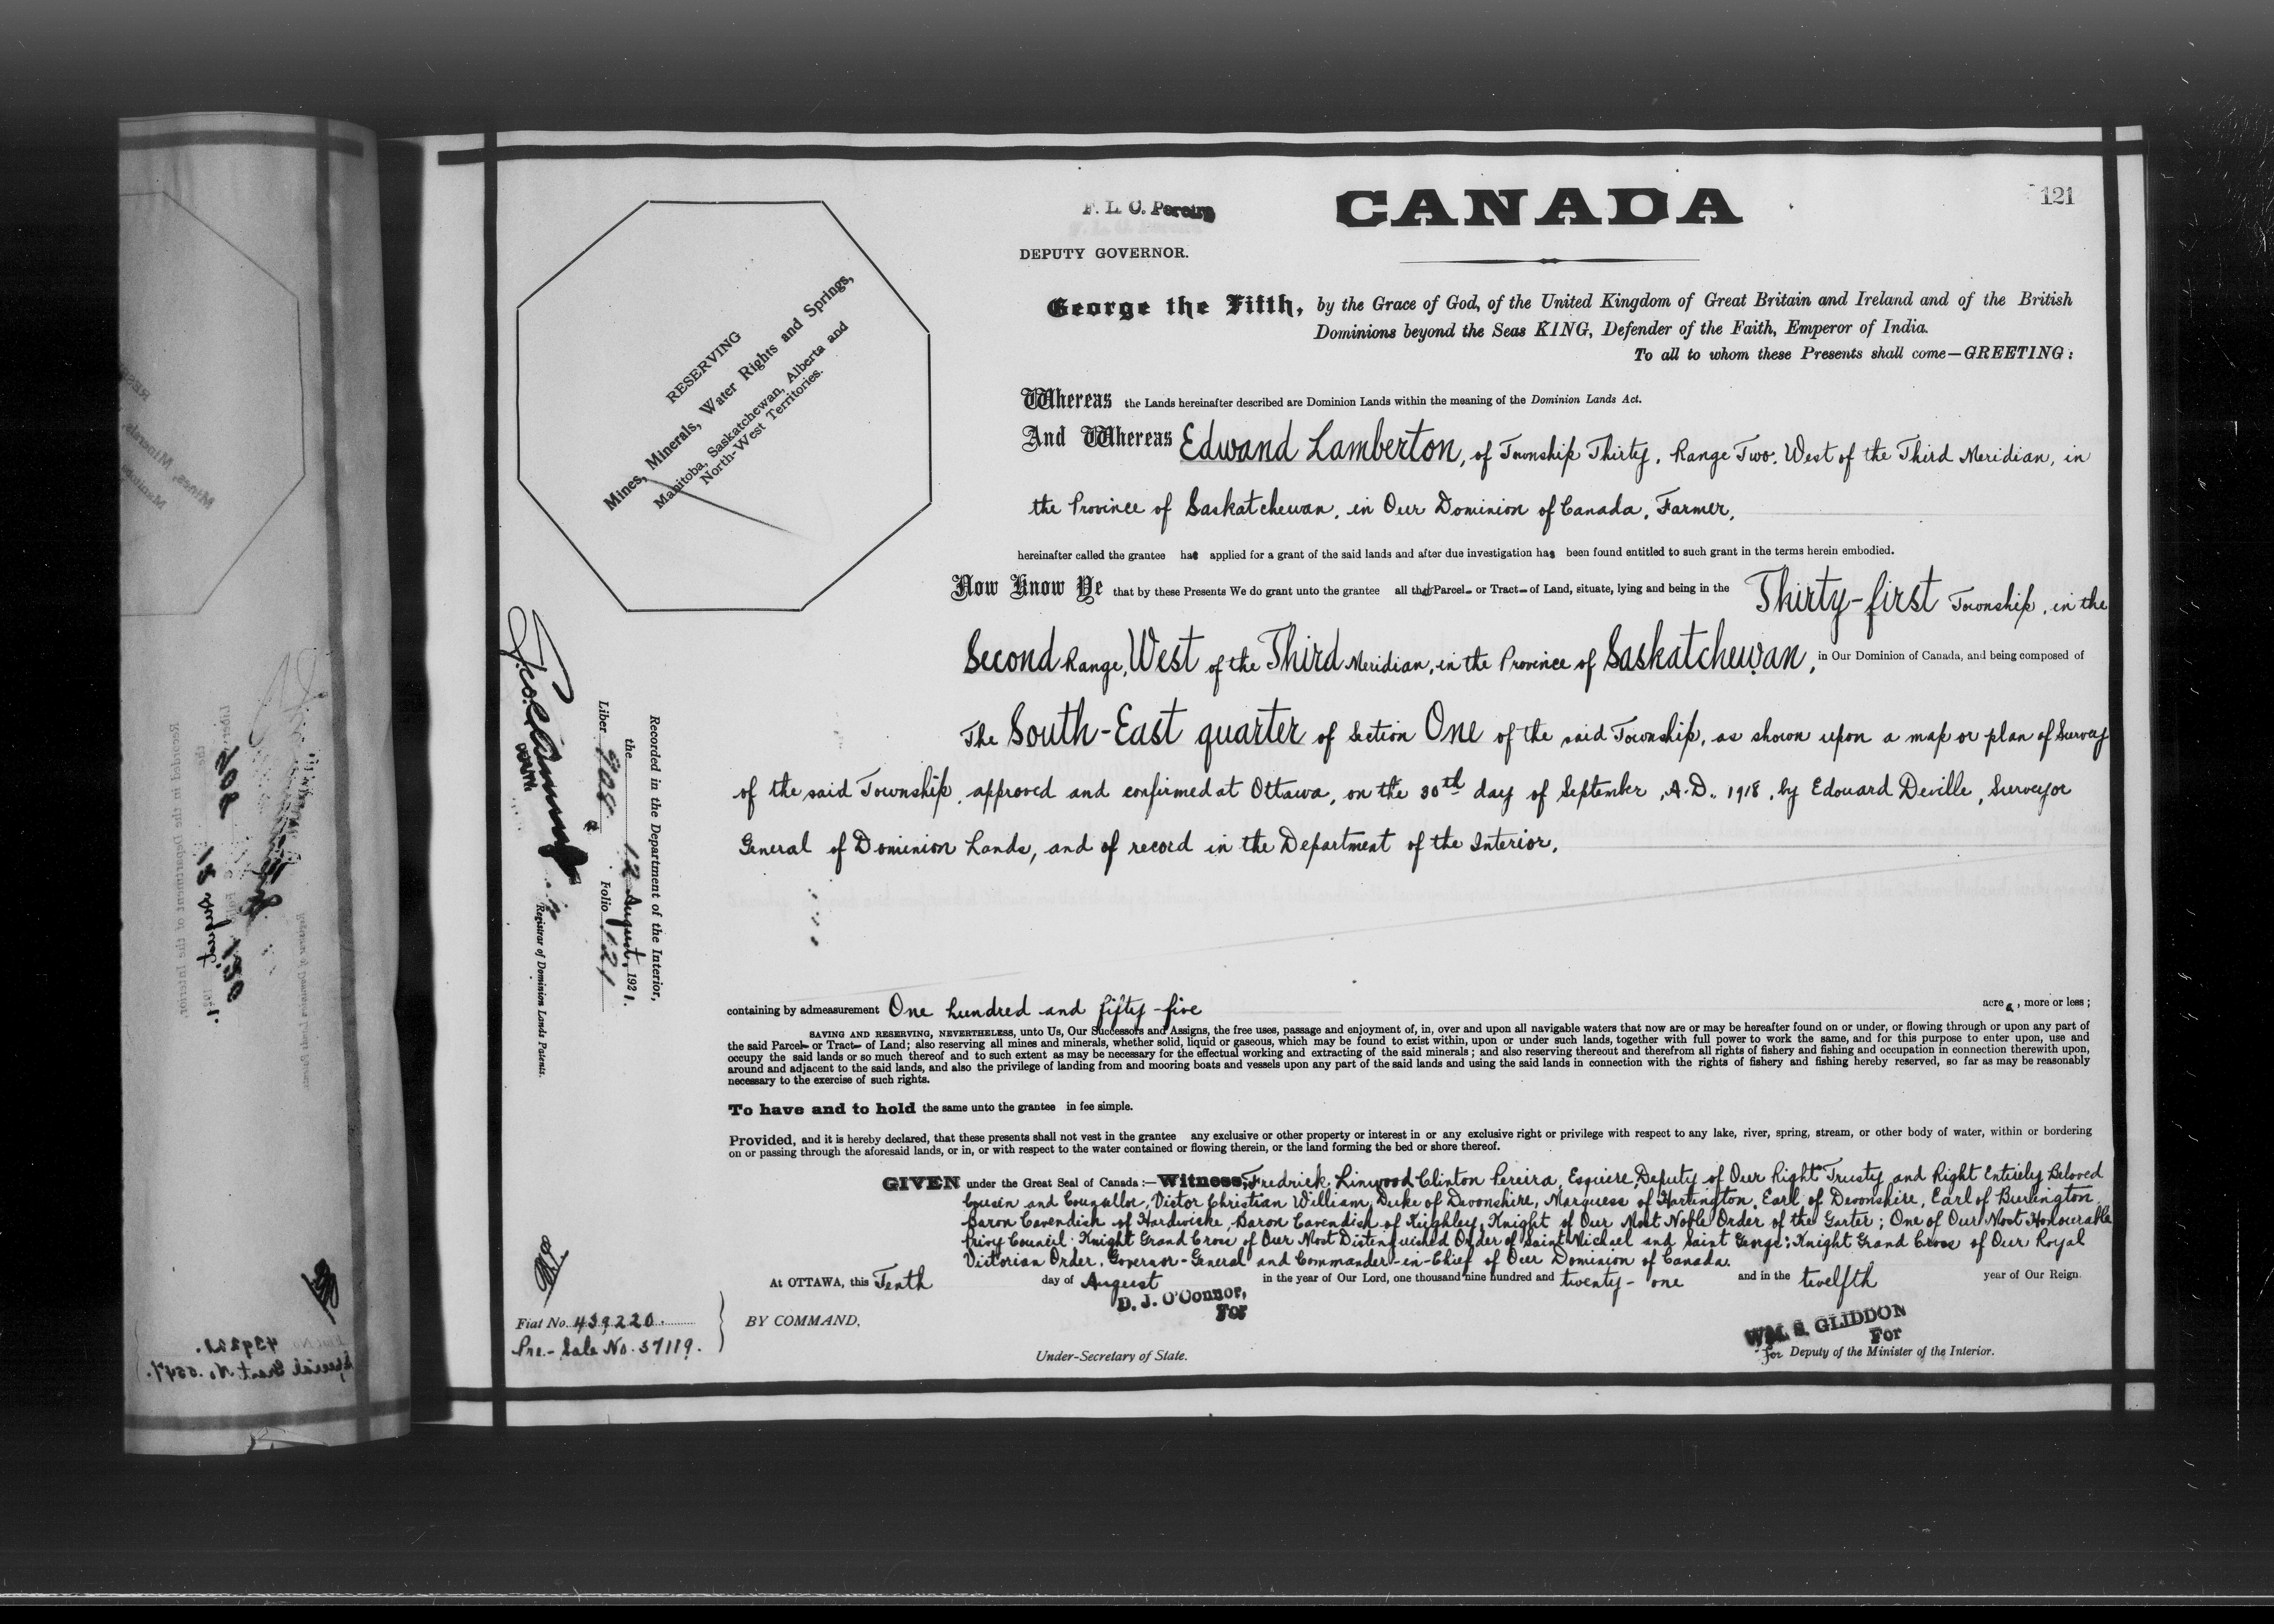 121
CANADA
F. L. C. Pereira
DEPUTY GOVERNOR.
RESERVING
Mines, Minerals, Water Rights and Springs,
Manitoba, Saskatchewan, Alberta and
North-West Territories.
George the Fifth, by the Grace of God, of the United Kingdom of Great Britain and Ireland and of the British
Dominions beyond the Seas KING, Defender of the Faith, Emperor of India.
To all to whom these Presents shall come—GREETING:
Whereas the Lands hereinafter described are Dominion Lands within the meaning of the Dominion Lands Act.
And Whereas Edward Lamberton, of Township Thirty, Range Two, West of the Third Meridian, in
the Province of Saskatchewan, in Our Dominion of Canada, Farmer,
hereinafter called the grantee has applied for a grant of the said lands and after due investigation has been found entitled to such grant in the terms herein embodied.
Now Know Ye that by these Presents We do grant unto the grantee all that Parcel or Tract of Land, situate, lying and being in the Thirty-first Township, in the
Second Range, West of the Third Meridian, in the Province of Saskatchewan, in Our Dominion of Canada, and being composed of
The South-East quarter of Section One of the said Township, as shown upon a map or plan of Survey
of the said Township, approved and confirmed at Ottawa, on the 30th day of September, A.D. 1918, by Edouard Deville, Surveyor
General of Dominion Lands, and of record in the Department of the Interior,
containing by admeasurement One hundred and fifty-five acres, more or less;
SAVING AND RESERVING, NEVERTHELESS, unto Us, Our Successors and Assigns, the free uses, passage and enjoyment of, in, over and upon all navigable waters that now are or may be hereafter found on or under, or flowing through or upon any part of
the said Parcel or Tract of Land; also reserving all mines and minerals, whether solid, liquid or gaseous, which may be found to exist within, upon or under such lands, together with full power to work the same, and for this purpose to enter upon, use and
occupy the said lands or so much thereof and to such extent as may be necessary for the effectual working and extracting of the said minerals; and also reserving thereout and therefrom all rights of fishery and fishing and occupation in connection therewith upon,
around and adjacent to the said lands, and also the privilege of landing from and mooring boats and vessels upon any part of the said lands and using the said lands in connection with the rights of fishery and fishing hereby reserved, so far as may be reasonably
necessary to the exercise of such rights.
To have and to hold the same unto the grantee in fee simple.
Provided, and it is hereby declared, that these presents shall not vest in the grantee any exclusive or other property or interest in or any exclusive right or privilege with respect to any lake, river, spring, stream, or other body of water, within or bordering
on or passing through the aforesaid lands, or in, or with respect to the water contained or flowing therein, or the land forming the bed or shore thereof.
GIVEN under the Great Seal of Canada:—Witness, Fredrick Linwood Clinton Pereira, Esquire, Deputy of Our Right Trusty and Right Entirely Beloved
Cousin and Counsellor, Victor Christian William, Duke of Devonshire, Marquess of Hartington, Earl of Devonshire, Earl of Burlington,
Baron Cavendish of Hardwicke, Baron Cavendish of Keighley, Knight of Our Most Noble Order of the Garter; One of Our Most Honourable
Privy Council; Knight Grand Cross of Our Most Distinguished Order of Saint Michael and Saint George; Knight Grand Cross of Our Royal
Victorian Order, Governor-General and Commander-in-Chief of Our Dominion of Canada.
At OTTAWA, this Tenth day of August in the year of Our Lord, one thousand nine hundred and twenty-one and in the twelfth year of Our Reign.
BY COMMAND,
D. J. O'Connor,
For
Under-Secretary of State.
WM. S. GLIDDON
For
for Deputy of the Minister of the Interior.
Recorded in the Department of the Interior,
the 12 August, 1921.
Liber 908 Folio 121
DEPUTY
Registrar of Dominion Lands Patents.
Fiat No. 439220
Pre-Sale No. 37119.